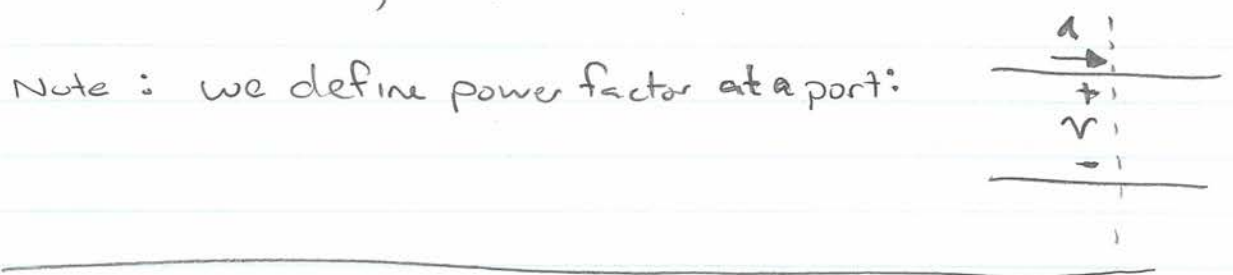 Note : we define power factor at a port:
+
v
-